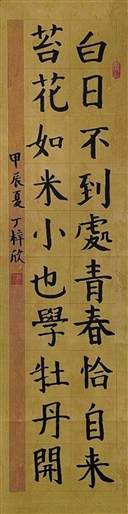 白日不到處青春恰自来
苔花如米小也學牡丹開
甲辰夏丁梓欣